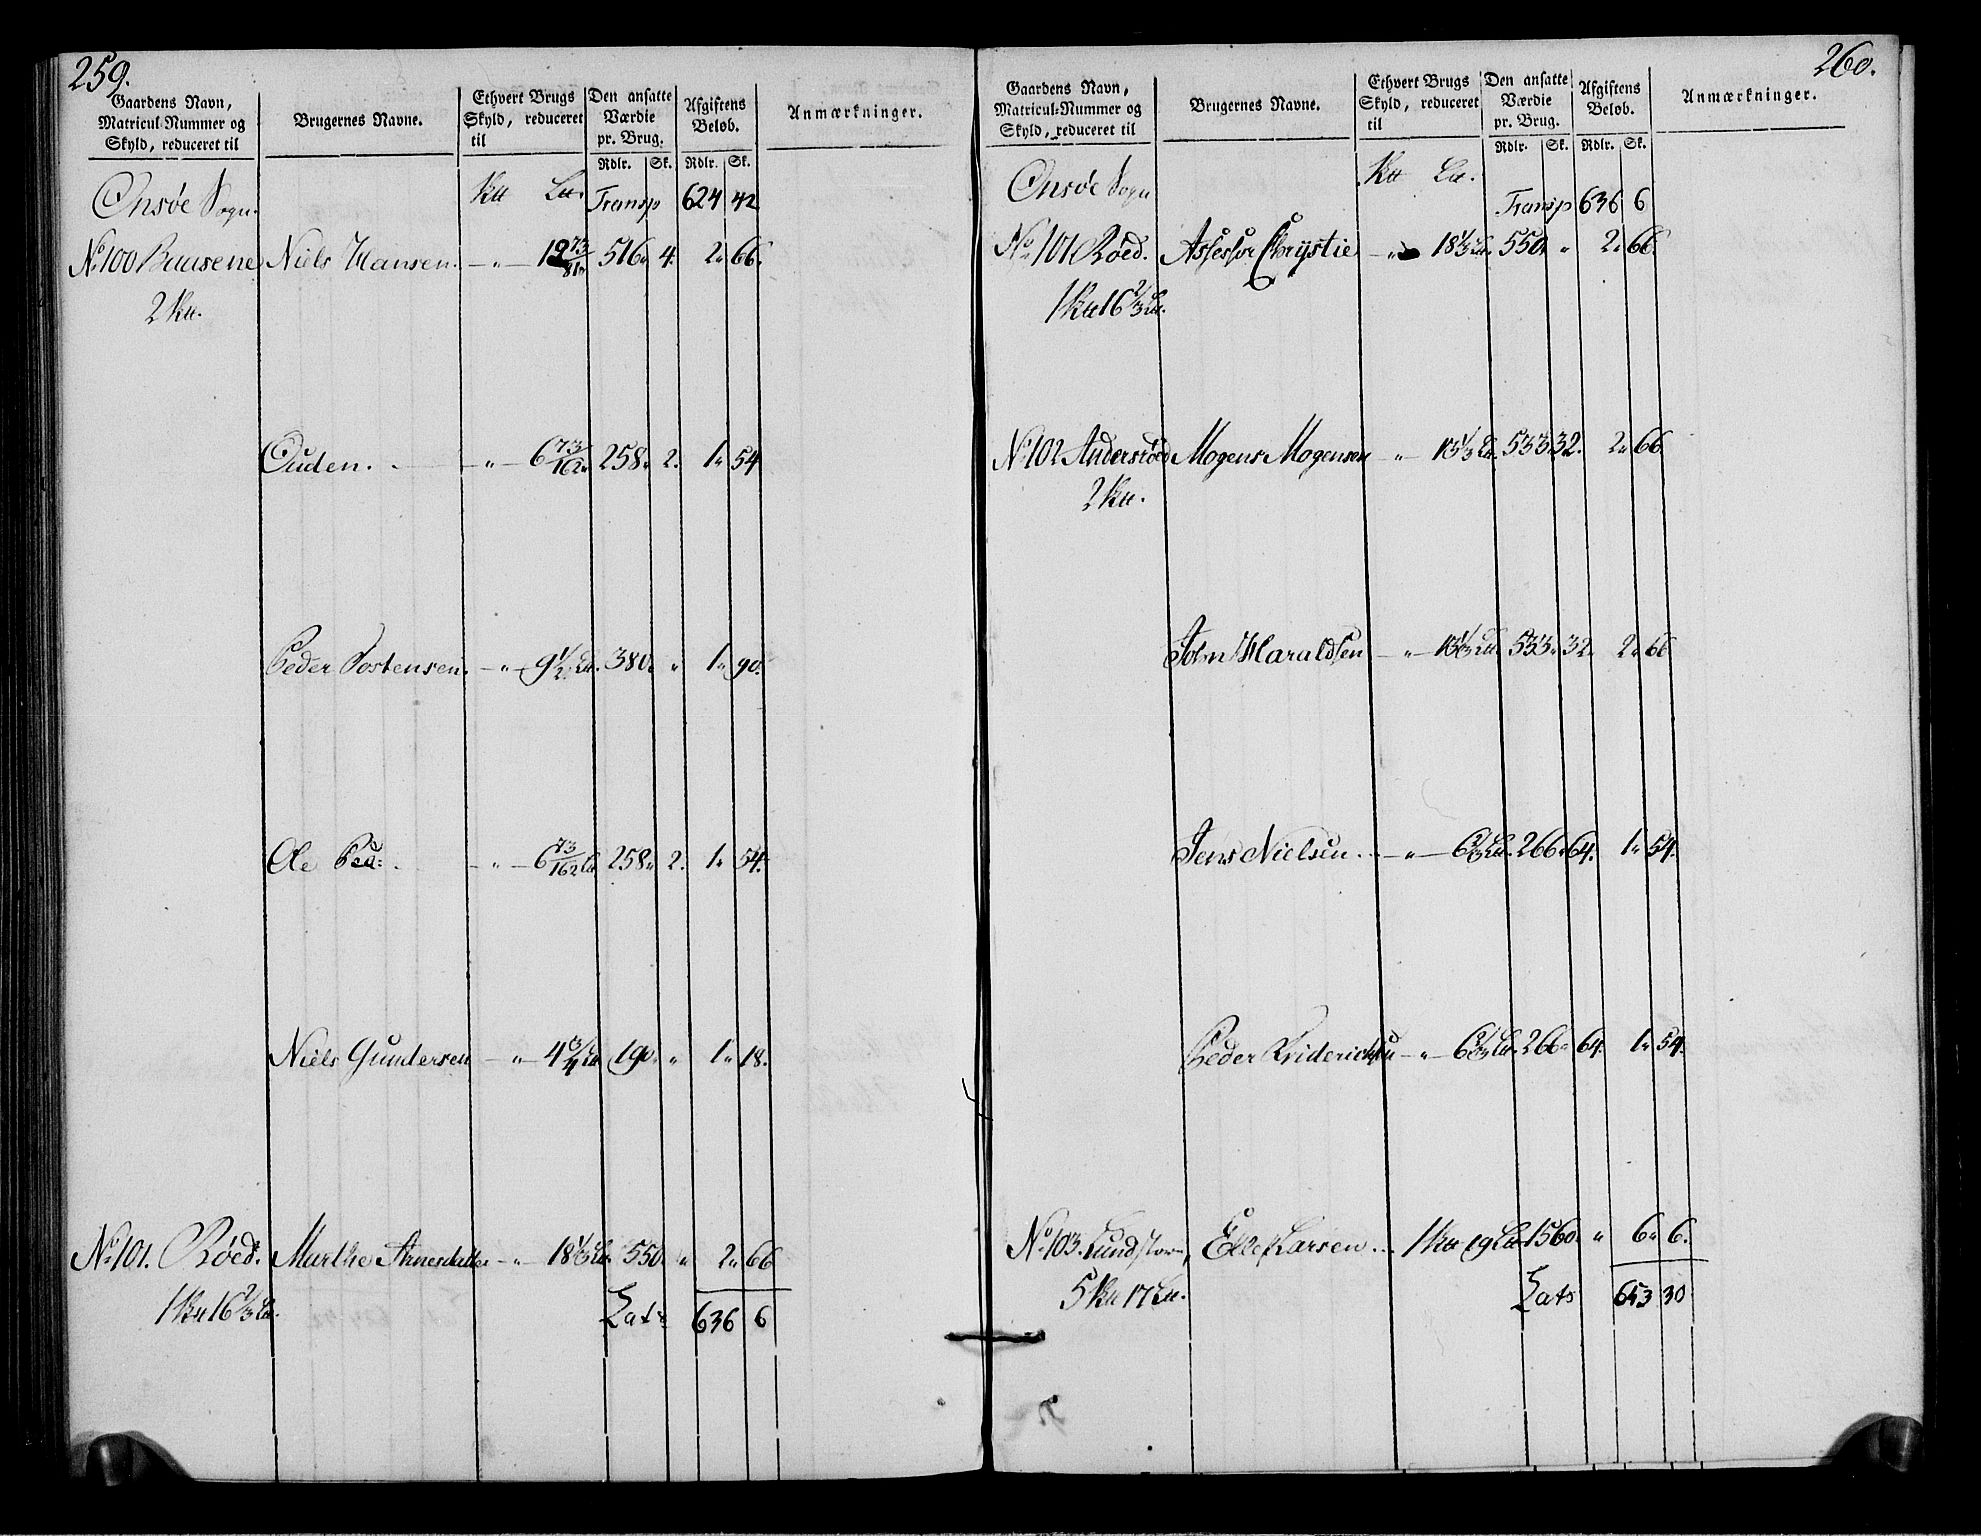 259.
Gaardens Navn, Matricul-Nummer og Skyld, reduceret til
Brugernes Navne.
Ethvert Brugs Skyld, reduceret til
Den ansatte Værdie pr. Brug.
Afgiftens Beløb.
Anmærkninger.
Rdlr. Sk. Rdlr. Sk.
Onsøe Sogn. Transp 624 42
No 100 Buusene Niels Hansen. - „ - 12 73/81 516„ 4. 2„ 66.
2
Ouden. - „ - 6 73/162 258„ 2. 1„ 54
Peder Tostensen. - „ - 9 1/2 380„ „ 1„ 90.
Ole Ped: - „ - 6 73/162 258„ 2. 1„ 54.
Niels Gundersen - „ 4 3/4 190„ „ 1„ 18.
No 101. Røed. Marthe Arnesdatter - „ 18 1/3 550„ „ 2„ 66
1 16 2/3
Lats 636 6
260.
Gaardens Navn, Matricul-Nummer og Skyld, reduceret til
Brugernes Navne.
Ethvert Brugs Skyld, reduceret til
Den ansatte Værdie pr. Brug.
Afgiftens Beløb.
Anmærkninger.
Rdlr. Sk. Rdlr. Sk.
Onsøe Sogn Transp 636 6
No 101 Røed. Assessor Chrystie - „ 18 1/3 550„ „ 2„ 66.
1 16 2/3
No 102 Andersrøed Mogens Mogensen - „ 13 1/3 533„ 32. 2„ 66
2
John Haraldsen - „ 13 1/3 533„ 32. 2„ 66
Jens Nielsen. - „ - 6 2/3 266„ 64. 1„ 54.
Peder Friderichsen - „ - 6 2/3 266„ 64. 1„ 54.
No 103. Lundstorm, Ellef Larsen. 1 19 1560„ „ 6„ 6.
5 17
Lats 653 30